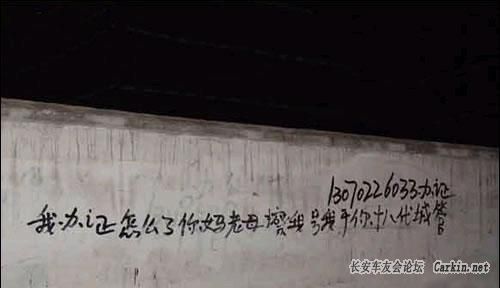 13070226033办证
我办证怎么了你妈老母擦我号我干你十八代城管
长安车友会论坛 Carkin.net